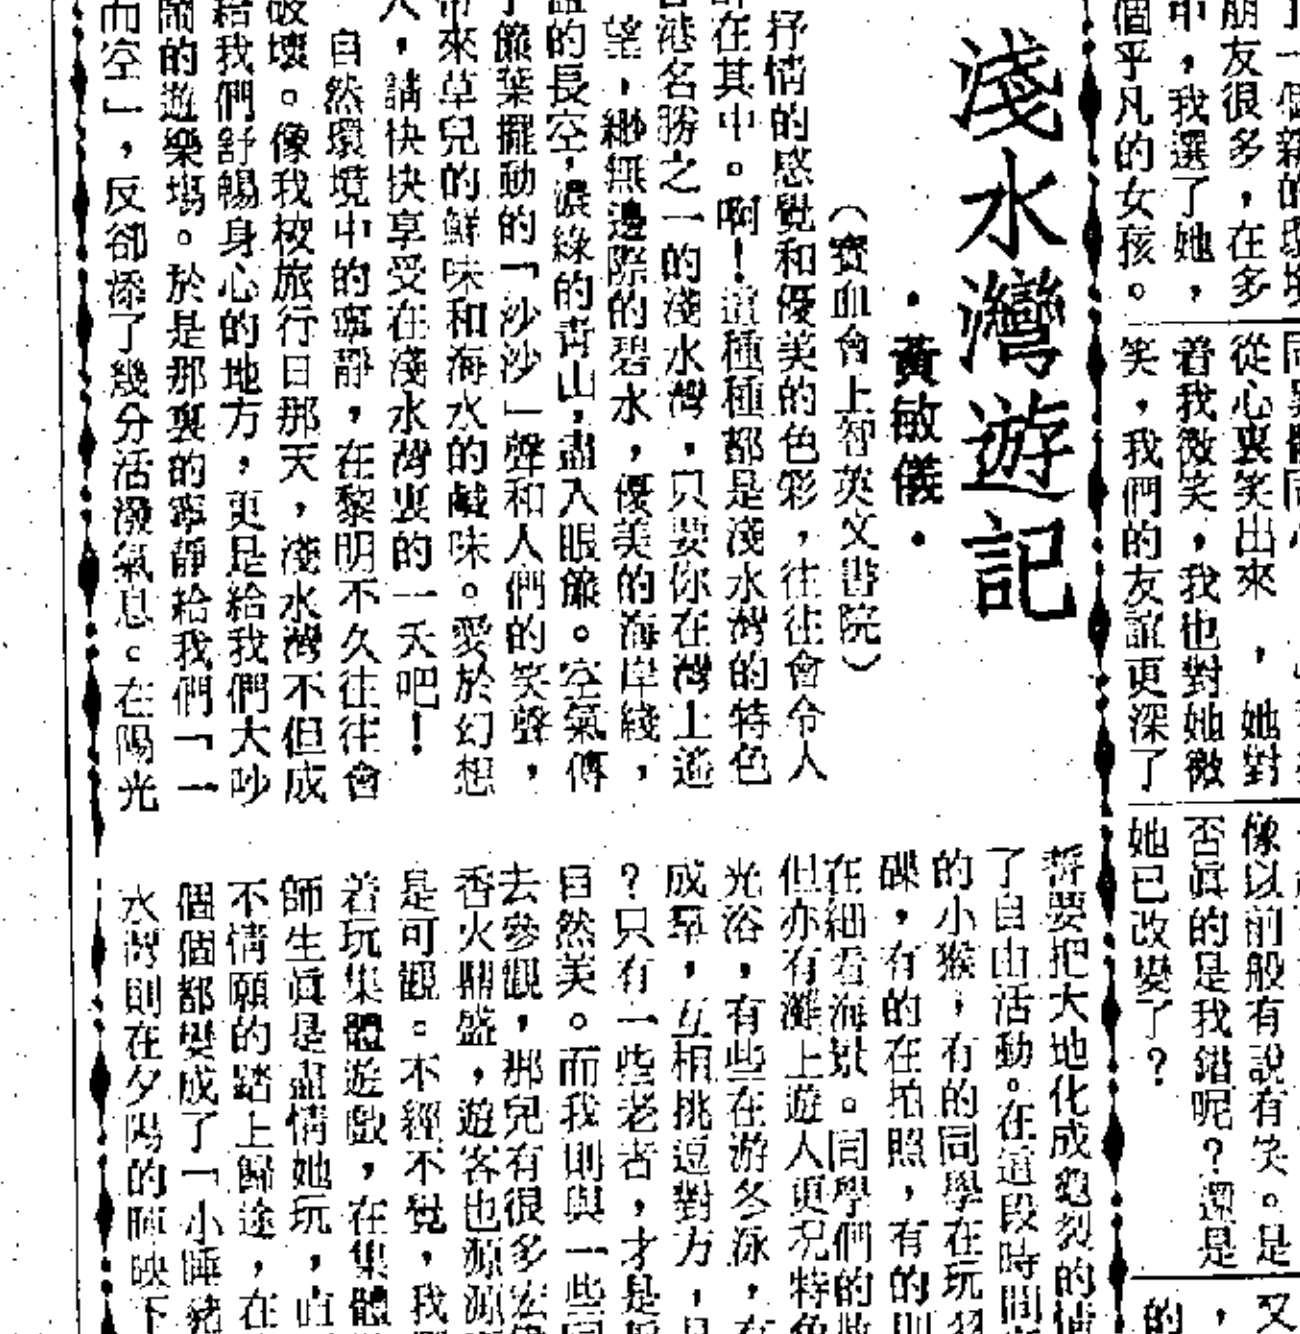 了一個新的環境
朋友很多，在多
中，我選了她，
個平凡的女孩。
從心裏笑出來，她對
着我微笑，我也對她微
笑，我們的友誼更深了
像以前般有說有笑。是
否眞的是我錯呢？還是
她已改變了？
又
，
的
淺水灣遊記
·黃敏儀·
（寶血會上智英文書院）
抒情的感覺和優美的色彩，往往會令人
在其中。啊！這種種都是淺水灣的特色
港名勝之一的淺水灣，只要你在灣上遙
望，緲無邊際的碧水，優美的海岸綫，
的長空，濃綠的青山，盡入眼簾。空氣傳
簾葉擺動的「沙沙」聲和人們的笑聲，
來草兒的鮮味和海水的鹹味。愛於幻想
人，請快快享受在淺水灣裏的一天吧！
自然環境中的寧靜，在黎明不久往往會
破壞。像我校旅行日那天，淺水灣不但成
給我們舒暢身心的地方，更是給我們大吵
鬧的遊樂塲。於是那裏的寧靜給我們「一
而空」，反卻添了幾分活潑氣息。在陽光
誓要把大地化成龜裂的
了自由活動。在這段時間
的小猴，有的同學在玩
碟，有的在拍照，有的則
在細看海景。同學們的
但亦有灘上遊人更況特色
光浴，有些在游冬泳，有
成羣，互相挑逗對方，
？只有一些老者，才是
自然美。而我則與一些同
去參觀，那兒有很多宏偉
香火鼎盛，遊客也源源
是可觀。不經不覺，我
着玩集體遊戲，在集體
師生眞是盡情她玩，直
不情願的踏上歸途，在
個個都變成了「小睡豬
水灣則在夕陽的暉映下